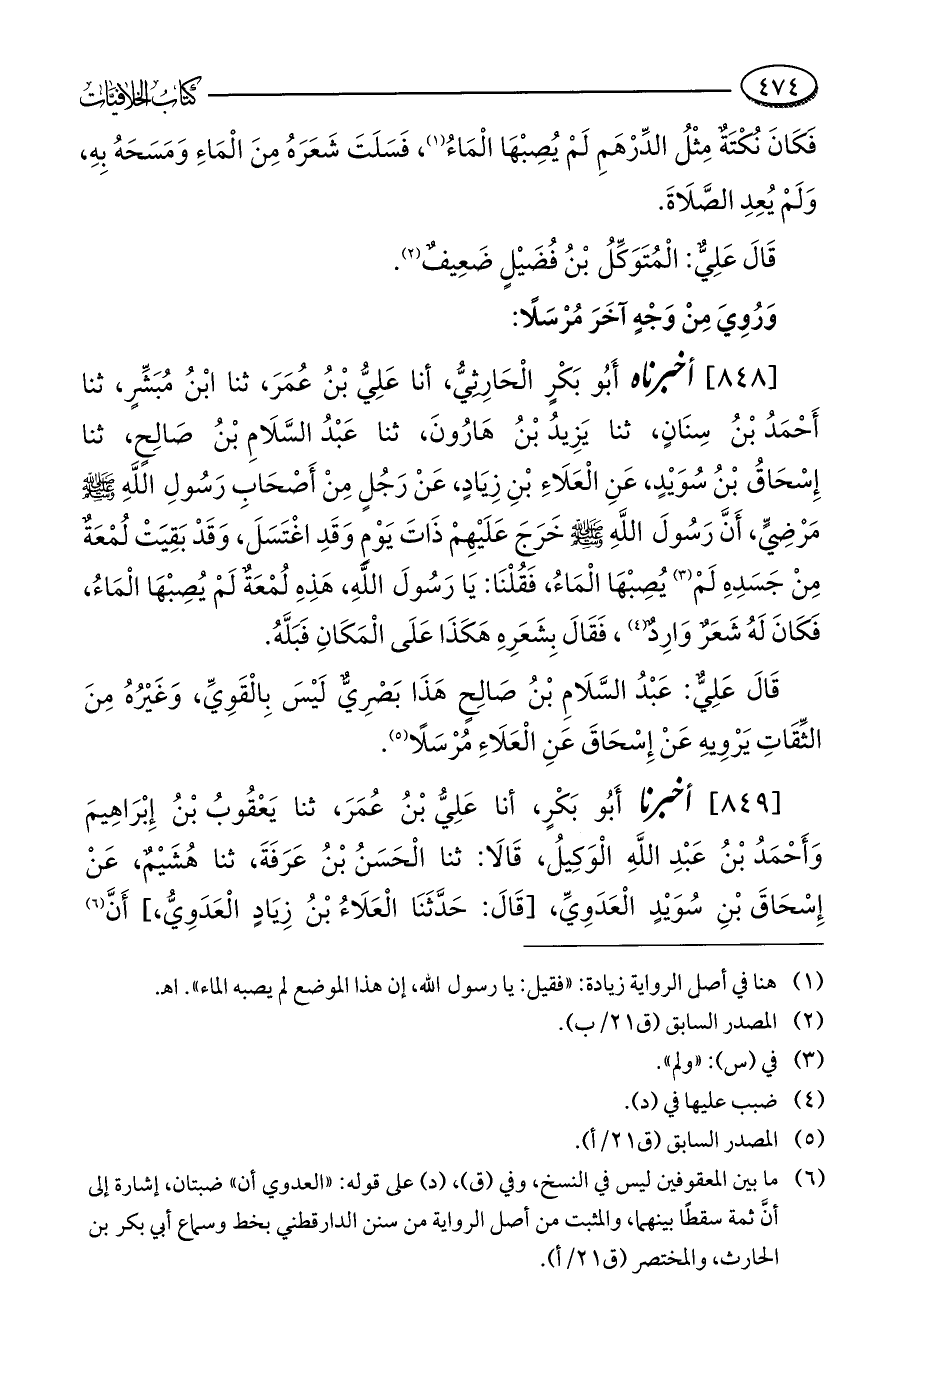 ٤٧٤ كتاب الخلافيات
فَكَانَ نُكْتَةٌ مِثْلُ الدِّرْهَمِ لَمْ يُصِبْهَا الْمَاءُ(١)، فَسَلَتَ شَعَرَهُ مِنَ الْمَاءِ وَمَسَحَهُ بِهِ،
وَلَمْ يُعِدِ الصَّلَاةَ.
قَالَ عَلِيٌّ: الْمُتَوَكِّلُ بْنُ فُضَيْلٍ ضَعِيفٌ(٢).
وَرُوِيَ مِنْ وَجْهٍ آخَرَ مُرْسَلًا:
[٨٤٨] أخبرناه أَبُو بَكْرٍ الْحَارِثِيُّ، أنا عَلِيُّ بْنُ عُمَرَ، ثنا ابْنُ مُبَشِّرٍ، ثنا
أَحْمَدُ بْنُ سِنَانٍ، ثنا يَزِيدُ بْنُ هَارُونَ، ثنا عَبْدُ السَّلَامِ بْنُ صَالِحٍ، ثنا
إِسْحَاقُ بْنُ سُوَيْدٍ، عَنِ الْعَلَاءِ بْنِ زِيَادٍ، عَنْ رَجُلٍ مِنْ أَصْحَابِ رَسُولِ اللَّهِ ﷺ
مَرْضِيٍّ، أَنَّ رَسُولَ اللَّهِ ﷺ خَرَجَ عَلَيْهِمْ ذَاتَ يَوْمٍ وَقَدِ اغْتَسَلَ، وَقَدْ بَقِيَتْ لُمْعَةٌ
مِنْ جَسَدِهِ لَمْ(٣) يُصِبْهَا الْمَاءُ، فَقُلْنَا: يَا رَسُولَ اللَّهِ، هَذِهِ لُمْعَةٌ لَمْ يُصِبْهَا الْمَاءُ،
فَكَانَ لَهُ شَعَرٌ وَارِدٌ(٤)، فَقَالَ بِشَعَرِهِ هَكَذَا عَلَى الْمَكَانِ فَبَلَّهُ.
قَالَ عَلِيٌّ: عَبْدُ السَّلَامِ بْنُ صَالِحٍ هَذَا بَصْرِيٌّ لَيْسَ بِالْقَوِيِّ، وَغَيْرُهُ مِنَ
الثِّقَاتِ يَرْوِيهِ عَنْ إِسْحَاقَ عَنِ الْعَلَاءِ مُرْسَلًا(٥).
[٨٤٩] أخبرنا أَبُو بَكْرٍ، أنا عَلِيُّ بْنُ عُمَرَ، ثنا يَعْقُوبُ بْنُ إِبْرَاهِيمَ
وَأَحْمَدُ بْنُ عَبْدِ اللَّهِ الْوَكِيلُ، قَالَا: ثنا الْحَسَنُ بْنُ عَرَفَةَ، ثنا هُشَيْمٌ، عَنْ
إِسْحَاقَ بْنِ سُوَيْدٍ الْعَدَوِيِّ، [قَالَ: حَدَّثَنَا الْعَلَاءُ بْنُ زِيَادٍ الْعَدَوِيُّ،] أَنَّ(٦)
(١) هنا في أصل الرواية زيادة: «فقيل: يا رسول الله، إن هذا الموضع لم يصبه الماء». اهـ.
(٢) المصدر السابق (ق٢١/ ب).
(٣) في (س): «ولم».
(٤) ضبب عليها في (د).
(٥) المصدر السابق (ق٢١/ أ).
(٦) ما بين المعقوفين ليس في النسخ، وفي (ق)، (د) على قوله: «العدوي أن» ضبتان، إشارة إلى
أنَّ ثمة سقطًا بينهما، والمثبت من أصل الرواية من سنن الدارقطني بخط وسماع أبي بكر بن
الحارث، والمختصر (ق٢١/ أ).